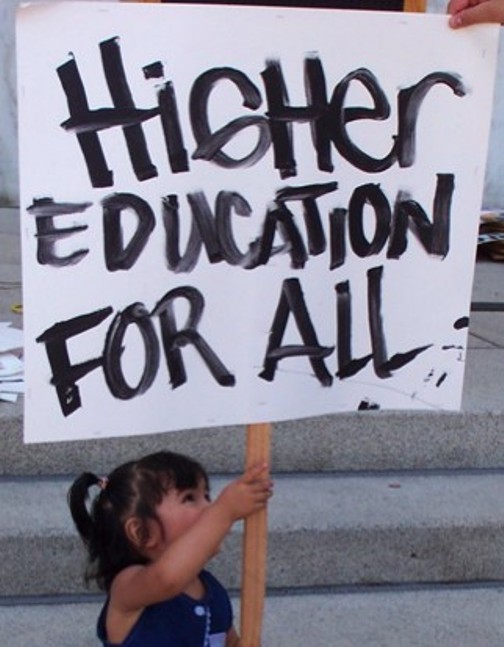 HiGHer
EDUCATiON
FOR ALL